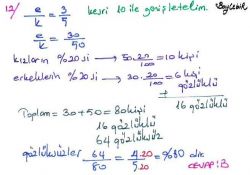 12/ e/k = 3/5 kesri 10 ile genişletelim.
e/k = 30/50
kızların %20 si → 50.20/100 = 10 kişi
erkeklerin %20 si → 30.20/100 = 6 kişi
+ gözlüklü
16 gözlüklü
Toplam = 30+50 = 80 kişi
16 gözlüklü
64 gözlüksüz
gözlüksüzler 64/80 = 4.20/5.20 = %80 dir.
CEVAP: B